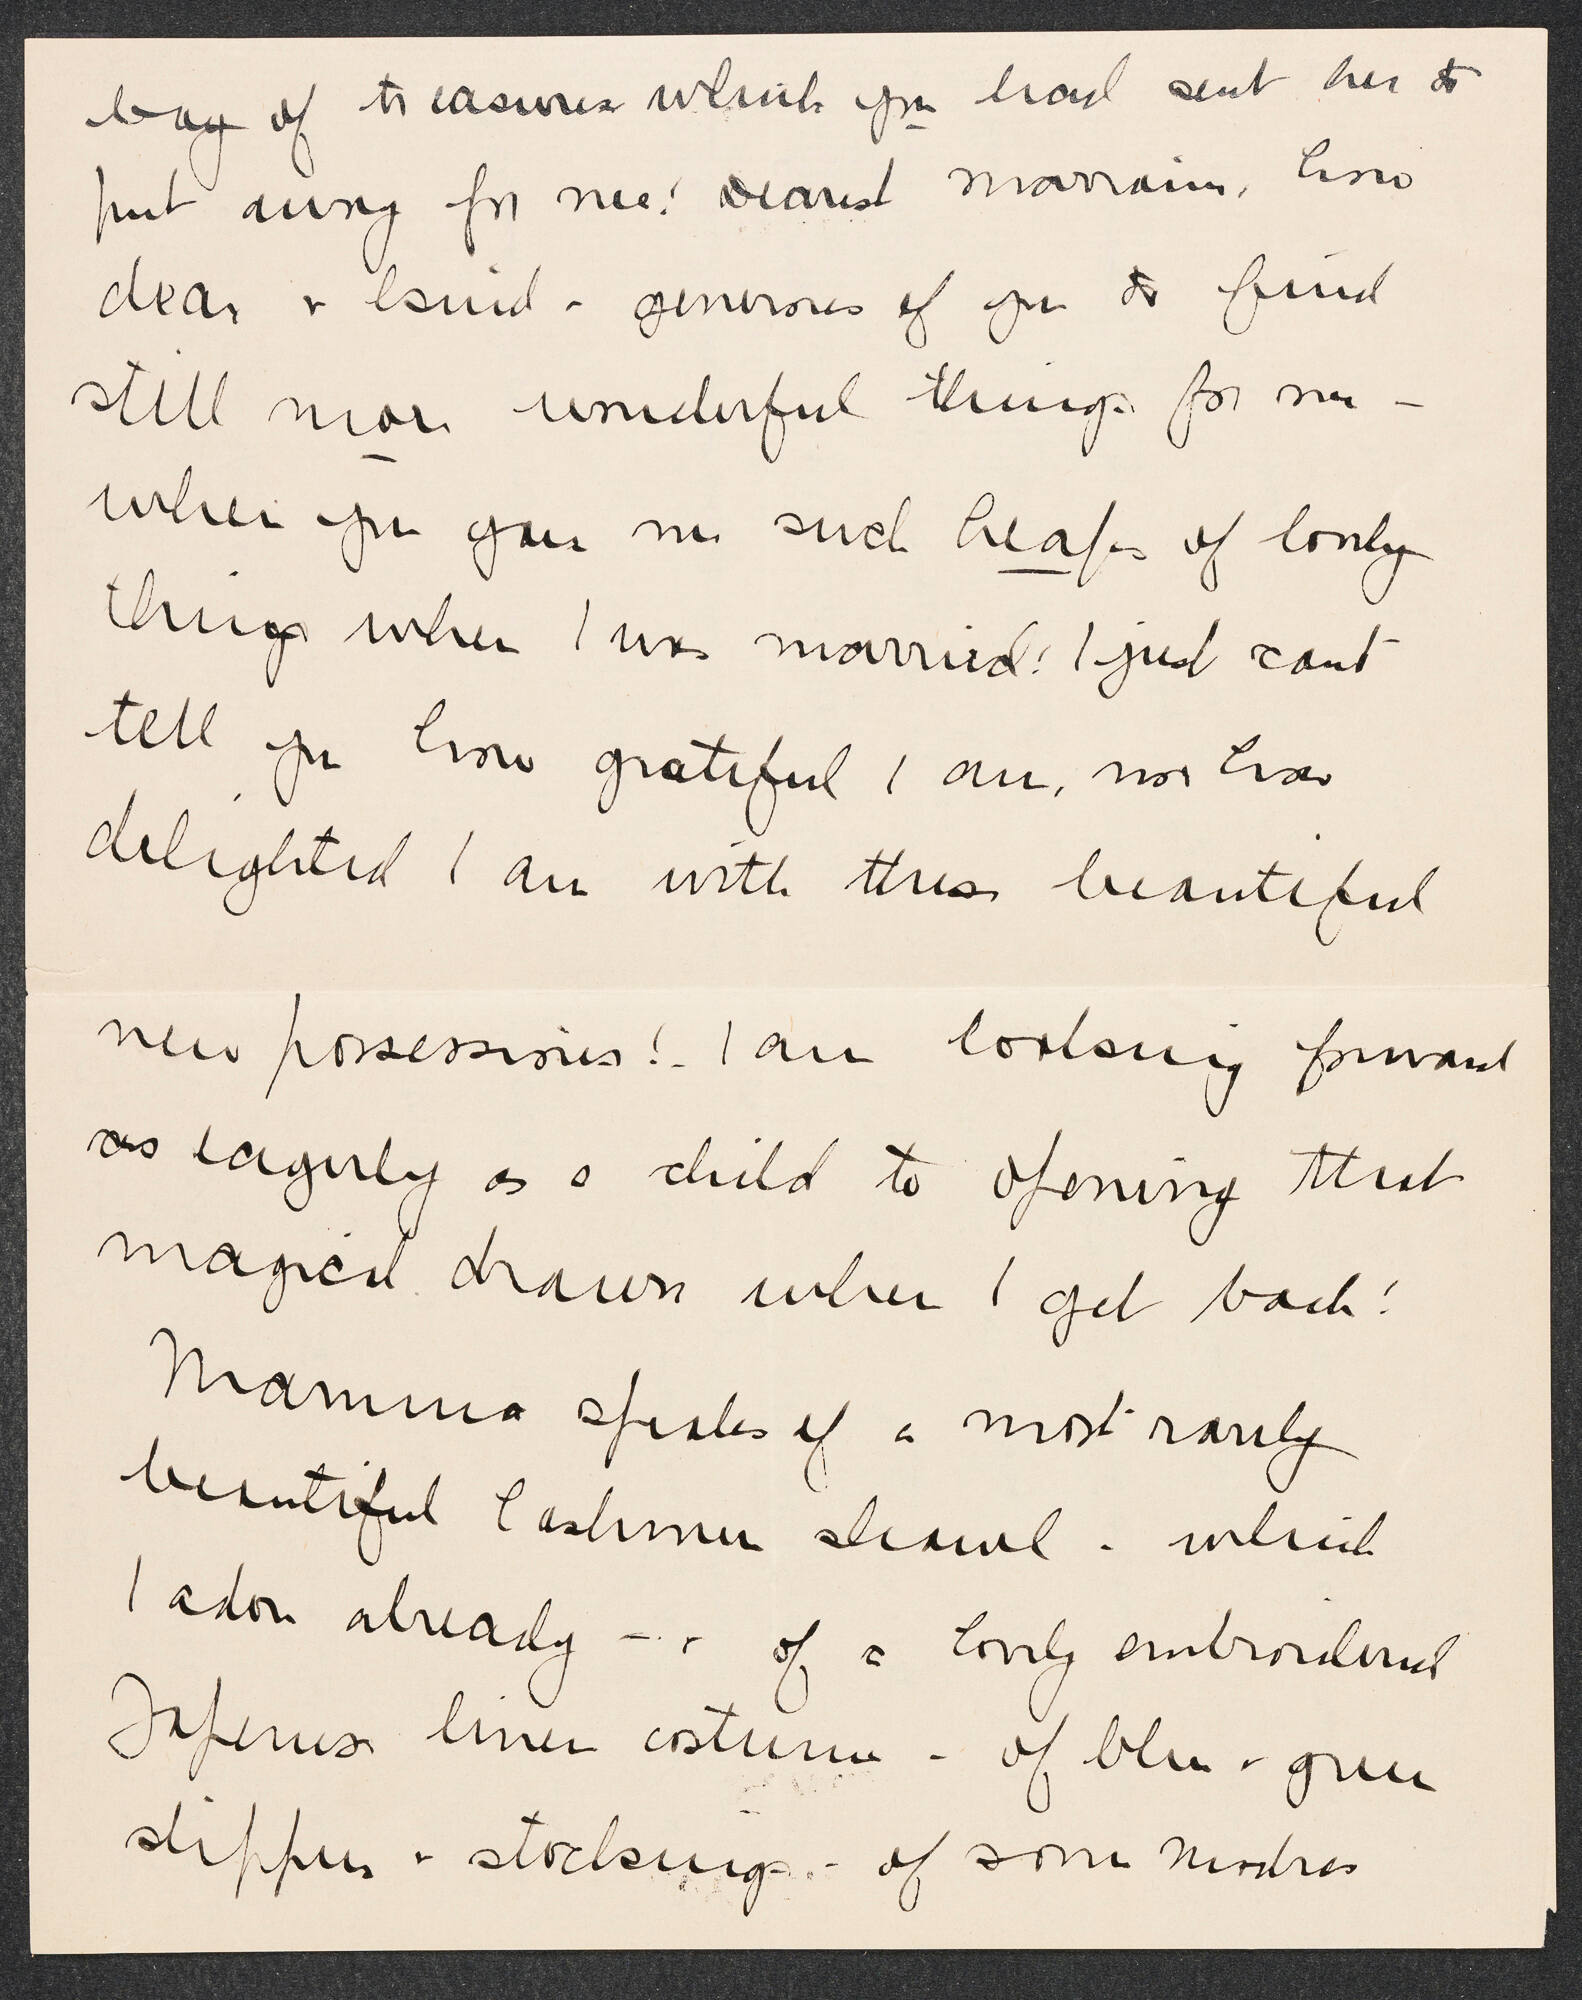 bag of treasures which you had sent her to
put away for me! Dearest marraine, how
dear & kind & generous of you to find
still more wonderful things for me –
when you gave me such heaps of lovely
things when I was married! I just cant
tell you how grateful I am, nor how
delighted I am with these beautiful
new possessions! – I am looking forward
as eagerly as a child to opening that
magical drawer when I get back!
Mamma speaks of a most rarely
beautiful Cashmere shawl – which
I adore already – & of a lovely embroidered
Japenese linen costume – of blue & green
slippers & stockings – of some Madras